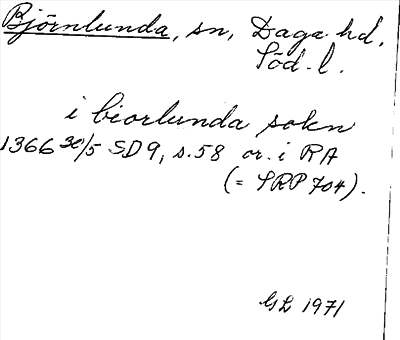 Björnlunda, sn, Daga hd,
Söd. l.
i biorlunda sokn
1366 30/5 SD9, s. 58 or. i RA
(= SRP 704).
GL 1971